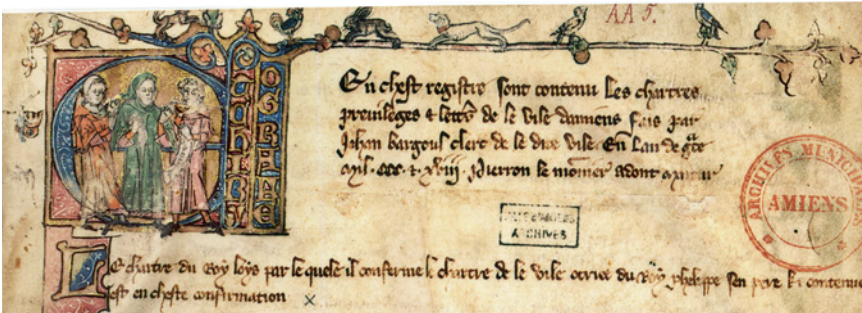 AA 5.
En chest registre sont contenu les chartres
previleges & lettres de le vile damiens fais par
Jehan bargoul clerc de le dite vile En lan de gce
mil. ccc. & xviij. Pierron le monier adont maieur
ARCHIVES MUNICI
AMIENS
ARCHIVES
Le chartre du Roy loys par le quele il conferme le chartre de le vile du Roy phelippe sen pere ki contenue
est en cheste confirmation x